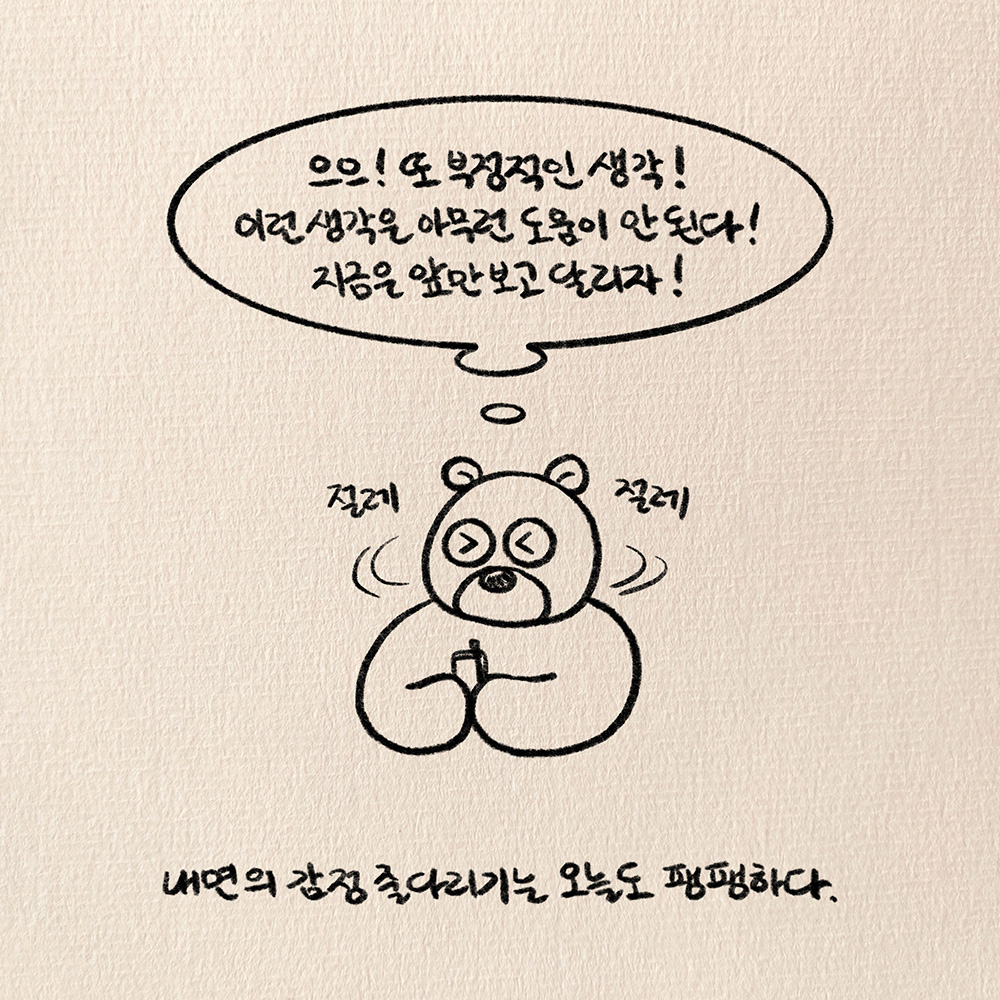 으으! 또 부정적인 생각!
이런 생각은 아무런 도움이 안 된다!
지금은 앞만 보고 달리자!
절레
절레
내면의 감정 줄다리기는 오늘도 팽팽하다.